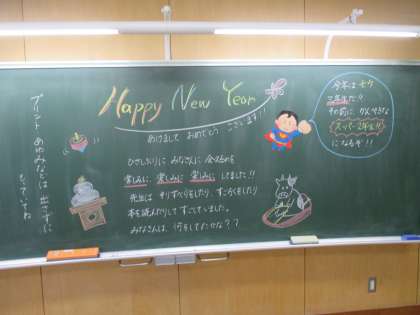 Happy New Year
あけまして おめでとう ございます!!
ひさしぶりに みなさんに 会えるのを
楽しみに、楽しみに 楽しみに しました!!
先生は そりすべりをしたり、すごろくをしたり
本を読んだりして すごしていました。
みなさんは、何をしてたかな??
今年は
三年生だ!!
その前に かんぺきな
スーパー2年生!!
になるぞ!!
プリント
などは 出さずに
もっていてね